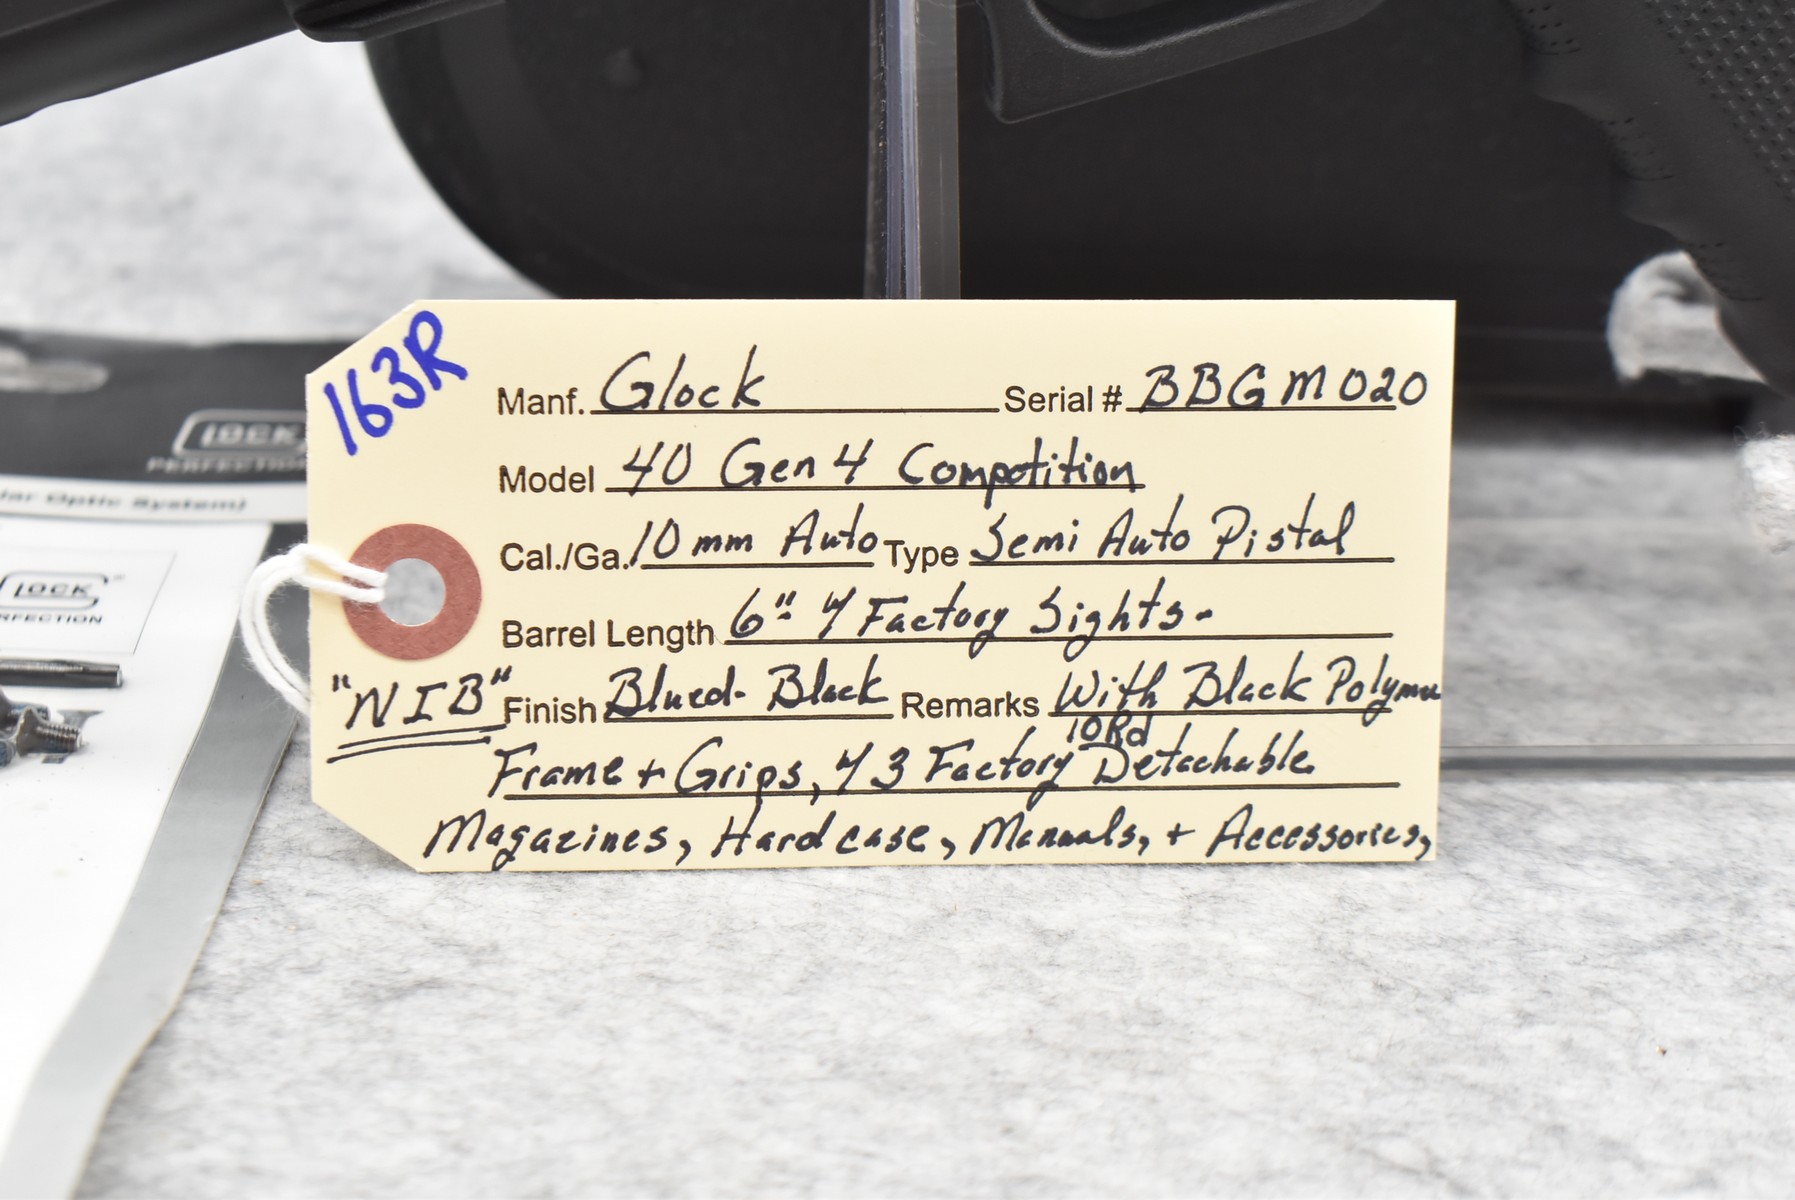 163R
Manf. Glock Serial # BBGM020
Model 40 Gen 4 Competition
Cal./Ga. 10mm Auto Type Semi Auto Pistal
Barrel Length 6" w/ Factory Sights-
"NIB" Finish Blued- Black Remarks With Black Polymer
10Rd
Frame + Grips, w/ 3 Factory Detachable
Magazines, Hardcase, Manuals, + Accessories,
LOCK
PERFECTION
lar Optic System)
LOCK
RFECTION